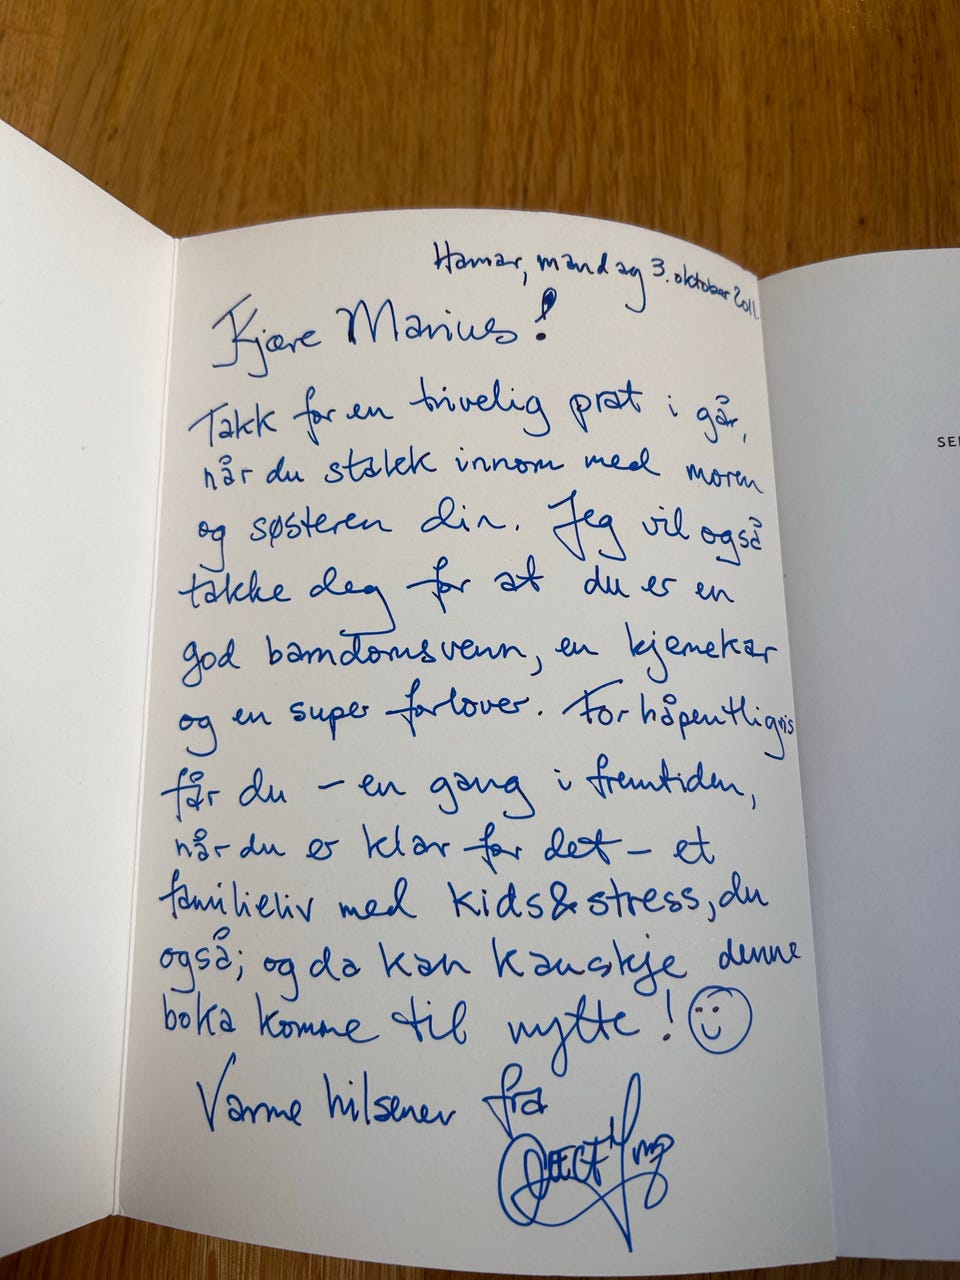 Hamar, mandag 3. oktober 2011.
Kjære Marius!
Takk for en trivelig prat i går,
når du stakk innom med moren
og søsteren din. Jeg vil også
takke deg for at du er en
god barndomsvenn, en kjernekar
og en super forlover. Forhåpentligvis
får du – en gang i fremtiden,
når du er klar for det – et
familieliv med kids&stress, du
også; og da kan kanskje denne
boka komme til nytte!
Varme hilsener fra